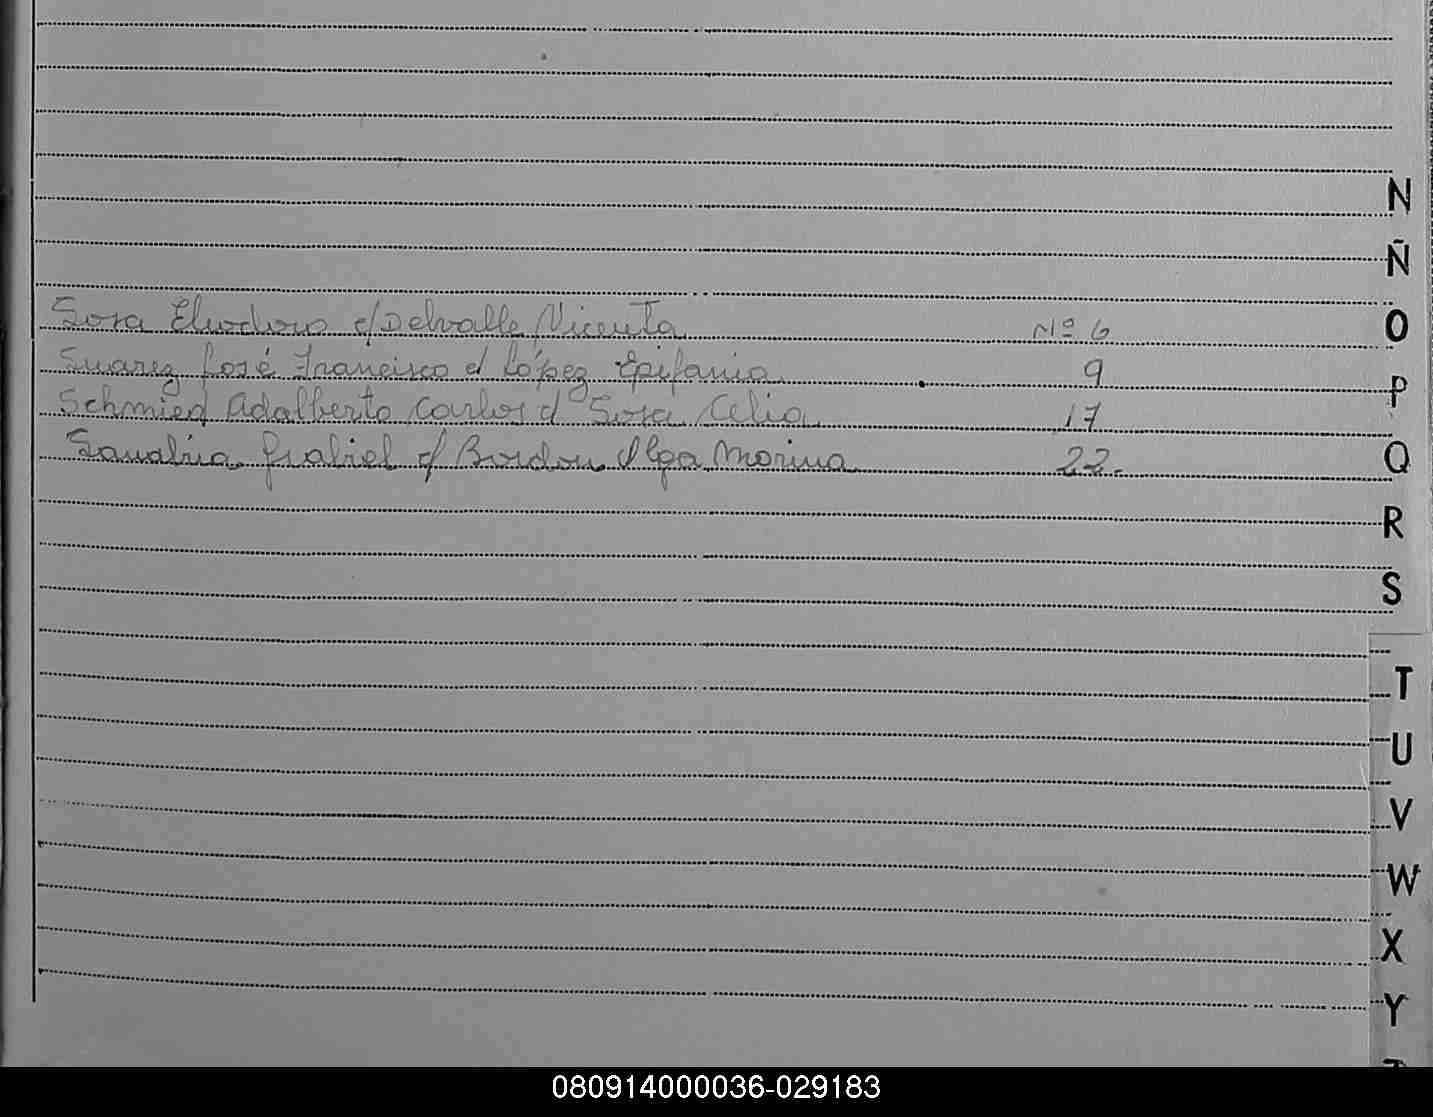 Sosa Eliodoro c/Delvalle Vicenta Nº 6
Suarez José Francisco c/ López Epifania 9
Schmied Adalberto Carlos c/ Sosa Celia 17
Sanabria Grabiel c/ Bordon Olga Morina 22.
N
Ñ
O
P
Q
R
S
T
U
V
W
X
Y
080914000036-029183